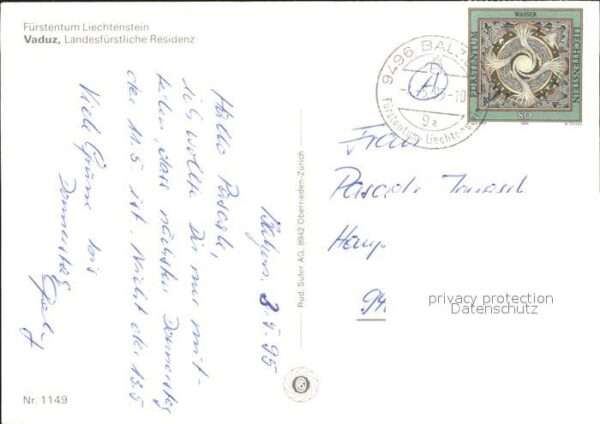 Fürstentum Liechtenstein
Vaduz, Landesfürstliche Residenz
Balzers, 3.5.95
Hallo Pascale,
ich wollte Dir nur mit-
teilen dass nächster Donnerstag
der 11.5 ist. Nicht der 13.5
Viele Grüsse bis
Donnerstag
Nr. 1149
Rud. Suter AG, 8942 Oberrieden-Zürich
9496 BALZ
A
9a
Fürstentum Liechtenstein
WASSER
FÜRSTENTUM
LIECHTENSTEIN
80
Frau
Pascale
94
privacy protection
Datenschutz